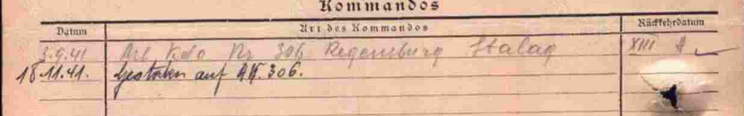 Kommandos
Datum Art des Kommandos Rückkehrdatum
3.9.41 Arb. Kdo Nr 306 Regensburg Stalag XIII A
18.11.41. Gestorben auf AK. 306.